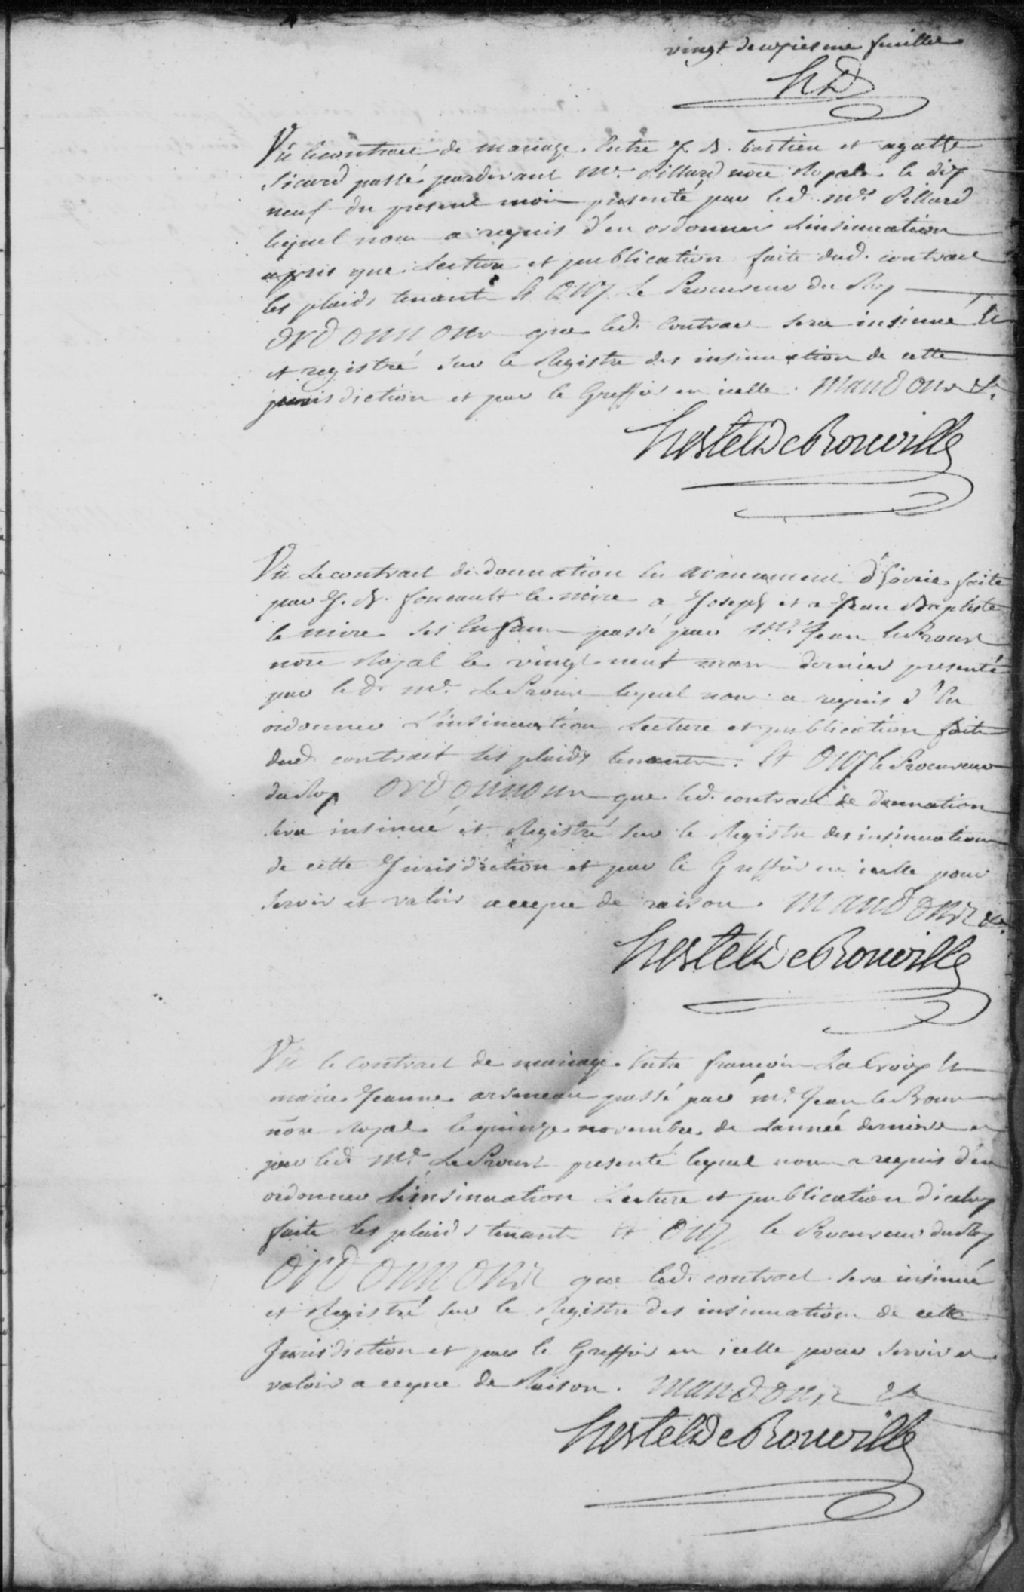 vingt deuxiesme feuillet
HD
Vû le contract de mariage Entre J. B. bastien et agathe
Sicard passé pardevant me. Pillard nore Royal le dix
neuf du present mois presenté par led. me. Pillard
lequel nous a requis d'en ordonner L'insinuation
apres que Lecture et publication faite dud. contract
les plaids tenant Et OUY le Procureur du Roy
ORDONNONS que led. Contract sera insinué
et registré sur le Registre des insinuation de cette
jurisdiction et par le Greffier en icelle. MANDONS &.
hertel De Rouville
Vû Le contract de donnation En avancement d'hoirie faite
par J. B. foucault le noire a Joseph et a Jean Baptiste
le noire ses Enfans passé par Me. Jean LeProust
nore Royal le vingt neuf mars dernier presenté
par led. me. LeProust lequel nous a requis d'En
ordonner L'insinuation Lecture et publication faite
dud. contract les plaids tenants. Et OUY le Procureur
du Roy ORDONNONS que led. contract de donnation
sera insinué et Registré sur le Registre des insinuations
de cette Jurisdiction et par le Greffier en icelle pour
servir et valoir a ceque de raison. MANDONS &.
hertel De Rouville
Vû le Contract de mariage Entre francois LaCroix et
marie Jeanne arseneau passé par me. Jean le Prous
nore Royal le quinze novembre de L'année derniere
par led. Me. LeProust presenté lequel nous a requis d'en
ordonner L'insinuation Lecture et publication diceluy
faite les plaids tenant Et OUY le Procureur du Roy
ORDONNONS que led. contract sera insinué
et Registré sur le Registre des insinuation de cette
Jurisdiction et par le Greffier en icelle pour servir et
valoir a ceque de Raison. MANDONS &.
hertel De Rouville